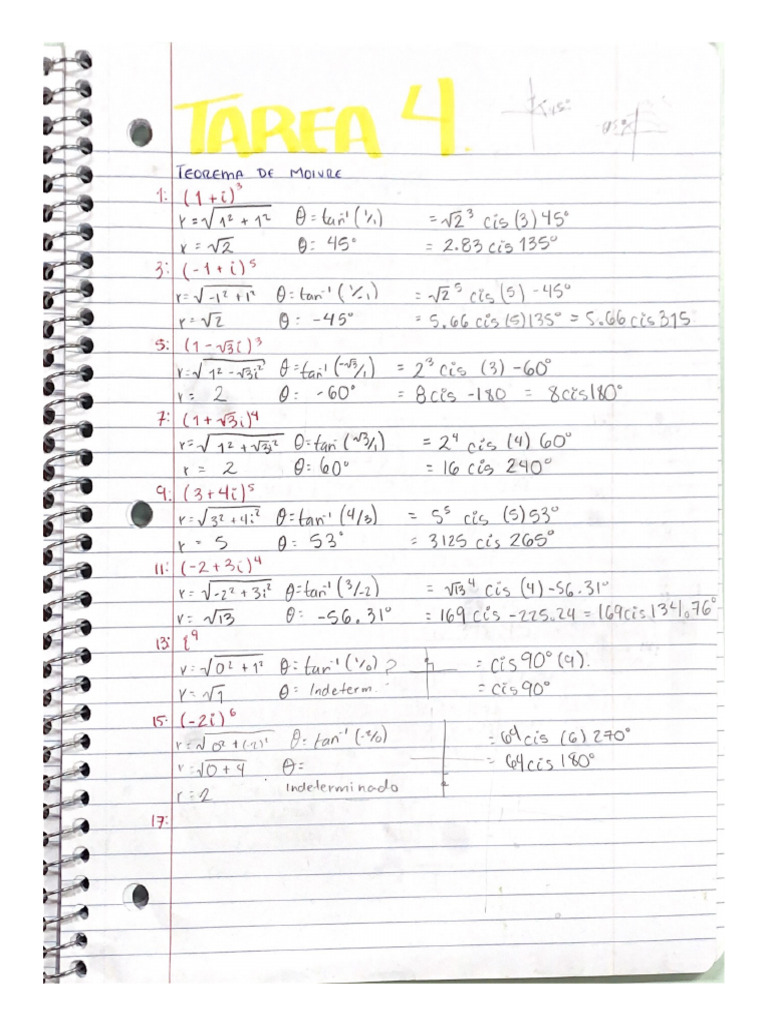 TAREA 4.
TEOREMA DE MOIVRE
1: (1+i)³
r = √1² + 1² θ = tan⁻¹ (1/1) = √2³ cis (3) 45°
r = √2 θ: 45° = 2.83 cis 135°
3: (-1+i)⁵
r = √-1² + 1² θ = tan⁻¹ (1/-1) = √2⁵ cis (5) -45°
r = √2 θ: -45° = 5.66 cis (5) 135° = 5.66 cis 315
5: (1-√3i)³
r = √1² - √3i² θ = tan⁻¹ (-√3/1) = 2³ cis (3) -60°
r = 2 θ: -60° = 8 cis -180 = 8 cis 180°
7: (1+√3i)⁴
r = √1² + √3i² θ = tan⁻¹ (√3/1) = 2⁴ cis (4) 60°
r = 2 θ: 60° = 16 cis 240°
9: (3+4i)⁵
r = √3² + 4i² θ = tan⁻¹ (4/3) = 5⁵ cis (5) 53°
r = 5 θ: 53° = 3125 cis 265°
11: (-2+3i)⁴
r = √-2² + 3i² θ = tan⁻¹ (3/-2) = √13⁴ cis (4) -56.31°
r = √13 θ: -56.31° = 169 cis -225.24 = 169 cis 134.76°
13: i⁹
r = √0² + 1² θ = tan⁻¹ (1/0) ? = cis 90° (9).
r = √1 θ: Indeterm. = cis 90°
15: (-2i)⁶
r = √0² + (-2)² θ = tan⁻¹ (-2/0) = 64 cis (6) 270°
r = √0 + 4 θ = = 64 cis 180°
r = 2 Indeterminado
17: